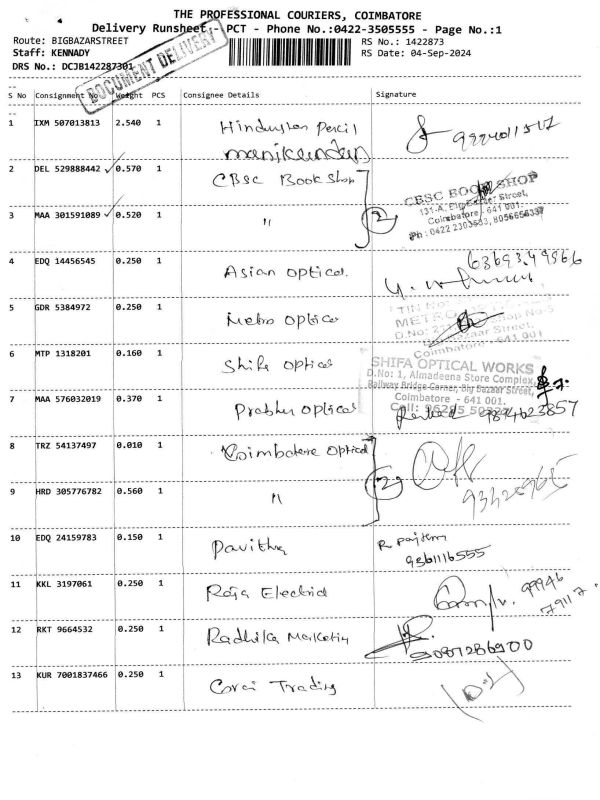 THE PROFESSIONAL COURIERS, COIMBATORE
Delivery Runsheet - PCT - Phone No.:0422-3505555 - Page No.:1
Route: BIGBAZARSTREET
RS No.: 1422873
Staff: KENNADY
RS Date: 04-Sep-2024
DRS No.: DCJB142287301
DOCUMENT DELIVERY
S No Consignment No Weight PCS Consignee Details Signature
1 IXM 507013813 2.540 1 Hindusthan Pencil
manikandan
2 DEL 529888442 0.570 1 CBSC Book Shop
CBSC BOOK SHOP
131-A, Big Bazaar Street,
Coimbatore - 641 001.
Ph : 0422 2303633, 8056656337
3 MAA 301591089 0.520 1 " 2
4 EDQ 14456545 0.250 1 Asian Optical
5 GDR 5384972 0.250 1 Metro Optical
TIN No:
METRO
Coimbatore - 641 001
6 MTP 1318201 0.160 1 Shifa Optical
SHIFA OPTICAL WORKS
D.No: 1, Almadeena Store Complex
Railway Bridge Corner, Big Bazaar Street,
Coimbatore - 641 001.
7 MAA 576032019 0.370 1 Prabhu Optical 9874623857
8 TRZ 54137497 0.010 1 Coimbatore Optical
9 HRD 305776782 0.560 1 " 2
10 EDQ 24159783 0.150 1 Pavithra
9361116555
11 KKL 3197061 0.250 1 Raja Electrical 99946
79117
12 RKT 9664532 0.250 1 Radhika Marketing
9087286900
13 KUR 7001837466 0.250 1 Covai Trading